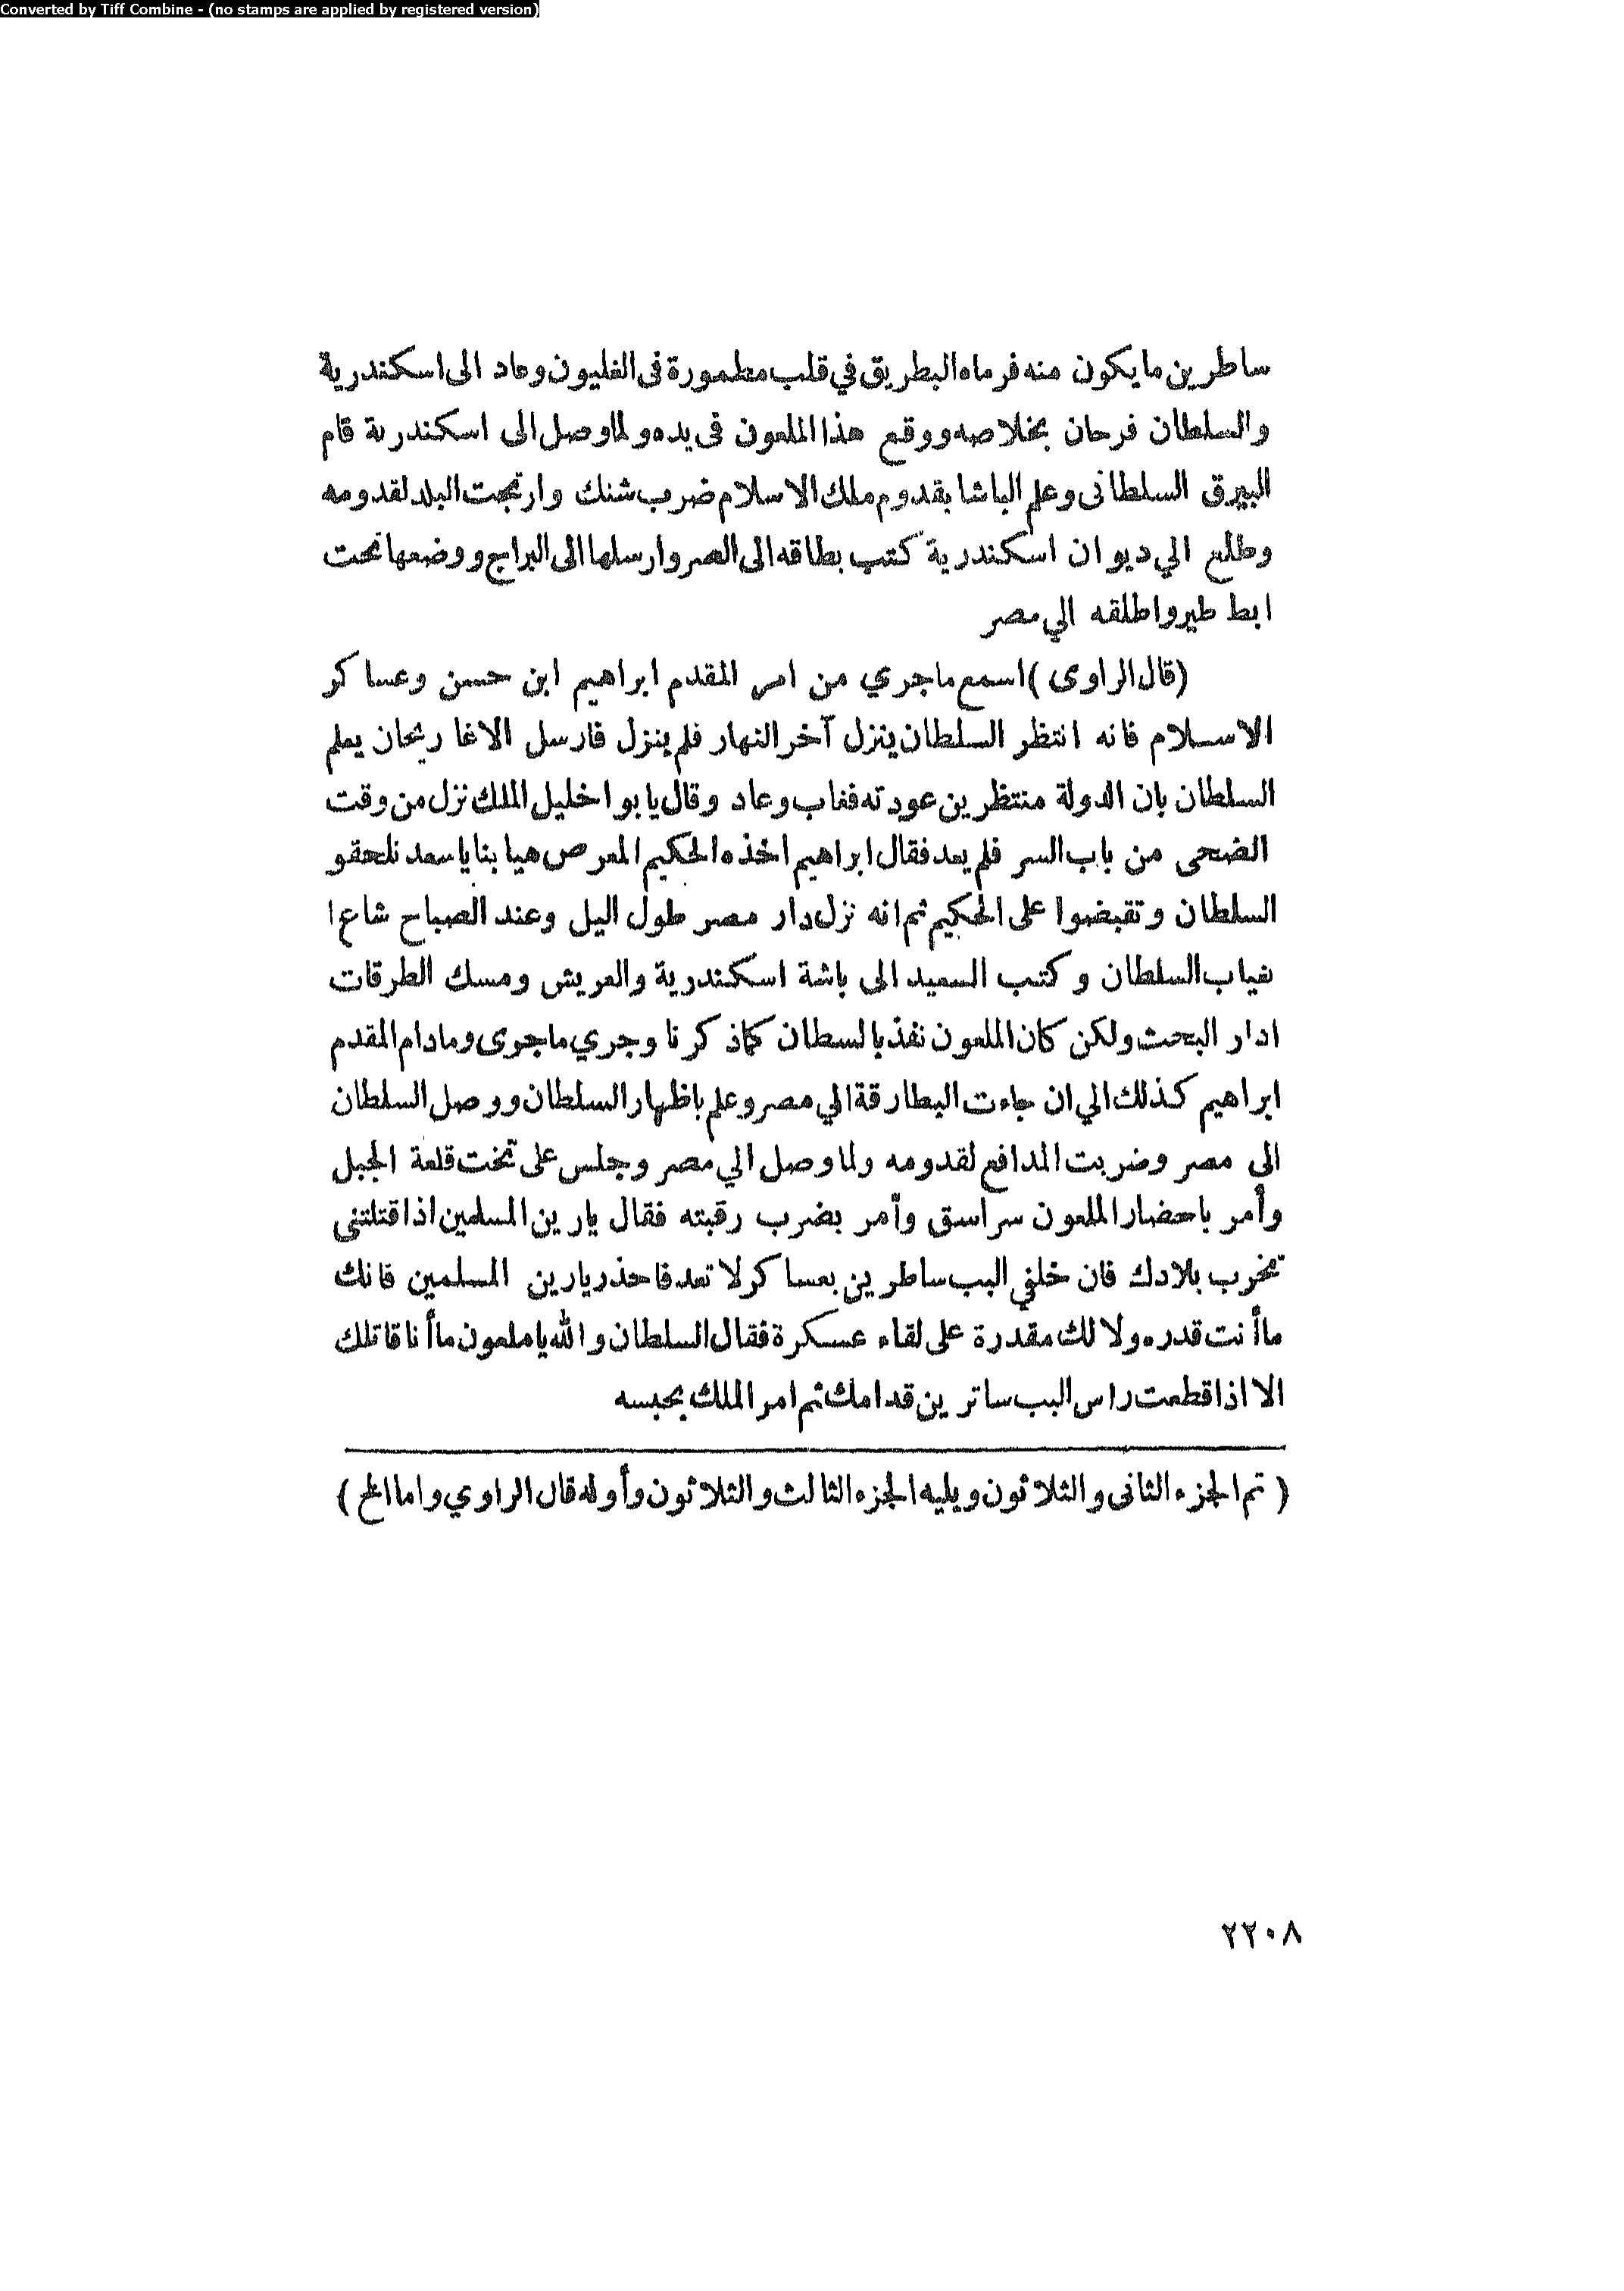 Converted by Tiff Combine - (no stamps are applied by registered version)
ساطرين ما يكون منه فرماه البطريق في قلب مطمورة فى الغليون وعاد الى اسكندرية
والسلطان فرحان بخلاصه ووقع هذا الملعون فى يده ولما وصل الى اسكندرية قام
البيرق السلطانى وعلم الباشا بقدوم ملك الاسلام ضرب شنك وارتجت البلد لقدومه
وطلع الي ديوان اسكندرية كتب بطاقه الى المصر وارسلها الى البراج ووضعها تحت
ابط طير واطلقه الي مصر
(قال الراوى) اسمع ما جري من امر المقدم ابراهيم ابن حسن وعساكر
الاسلام فانه انتظر السلطان ينزل آخر النهار فلم ينزل فارسل الاغا ريحان يعلم
السلطان بان الدولة منتظرين عودته فغاب وعاد وقال يا بوا خليل الملك نزل من وقت
الضحى من باب السر فلم يعد فقال ابراهيم اخذه الحكيم المعرص هيا بنا يا سعد نلحقو
السلطان وتقبضوا على الحكيم ثم انه نزل دار مصر طول اليل وعند الصباح شاع ا
غياب السلطان وكتب السعيد الى باشة اسكندرية والعريش ومسك الطرقات
ادار البحث ولكن كان الملعون نفذ بالسطان كماذكرنا وجري ماجرى ومادام المقدم
ابراهيم كذلك الي ان جاءت البطارقة الي مصر وعلم باظهار السلطان ووصل السلطان
الى مصر وضربت المدافع لقدومه ولما وصل الي مصر وجلس على تخت قلعة الجبل
وأمر باحضار الملعون سراسق وأمر بضرب رقبته فقال يارين المسلمين اذا قتلتنى
تخرب بلادك فان خلفي البب ساطرين بعساكر لا تعد فاحذر يارين المسلمين فانك
ماأنت قدره ولا لك مقدرة على لقاء عسكرة فقال السلطان والله يا ملعون ماأنا قاتلك
الا اذا قطعت راس البب ساترين قدامك ثم امر الملك بحبسه
( تم الجزء الثانى والثلاثون ويليه الجزء الثالث والثلاثون وأوله قال الراوي واما الخ )
٢٢٠٨